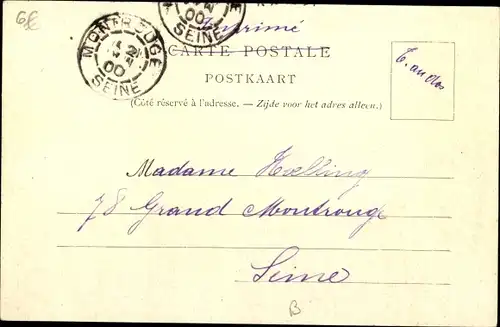 6€
MONTROUGE
00
SEINE
00
SEINE
Imprimé
CARTE POSTALE
POSTKAART
(Côté réservé à l'adresse. — Zijde voor het adres alleen.)
T. au dos
Madame Hœlling
78 Grand Montrouge
Seine
B